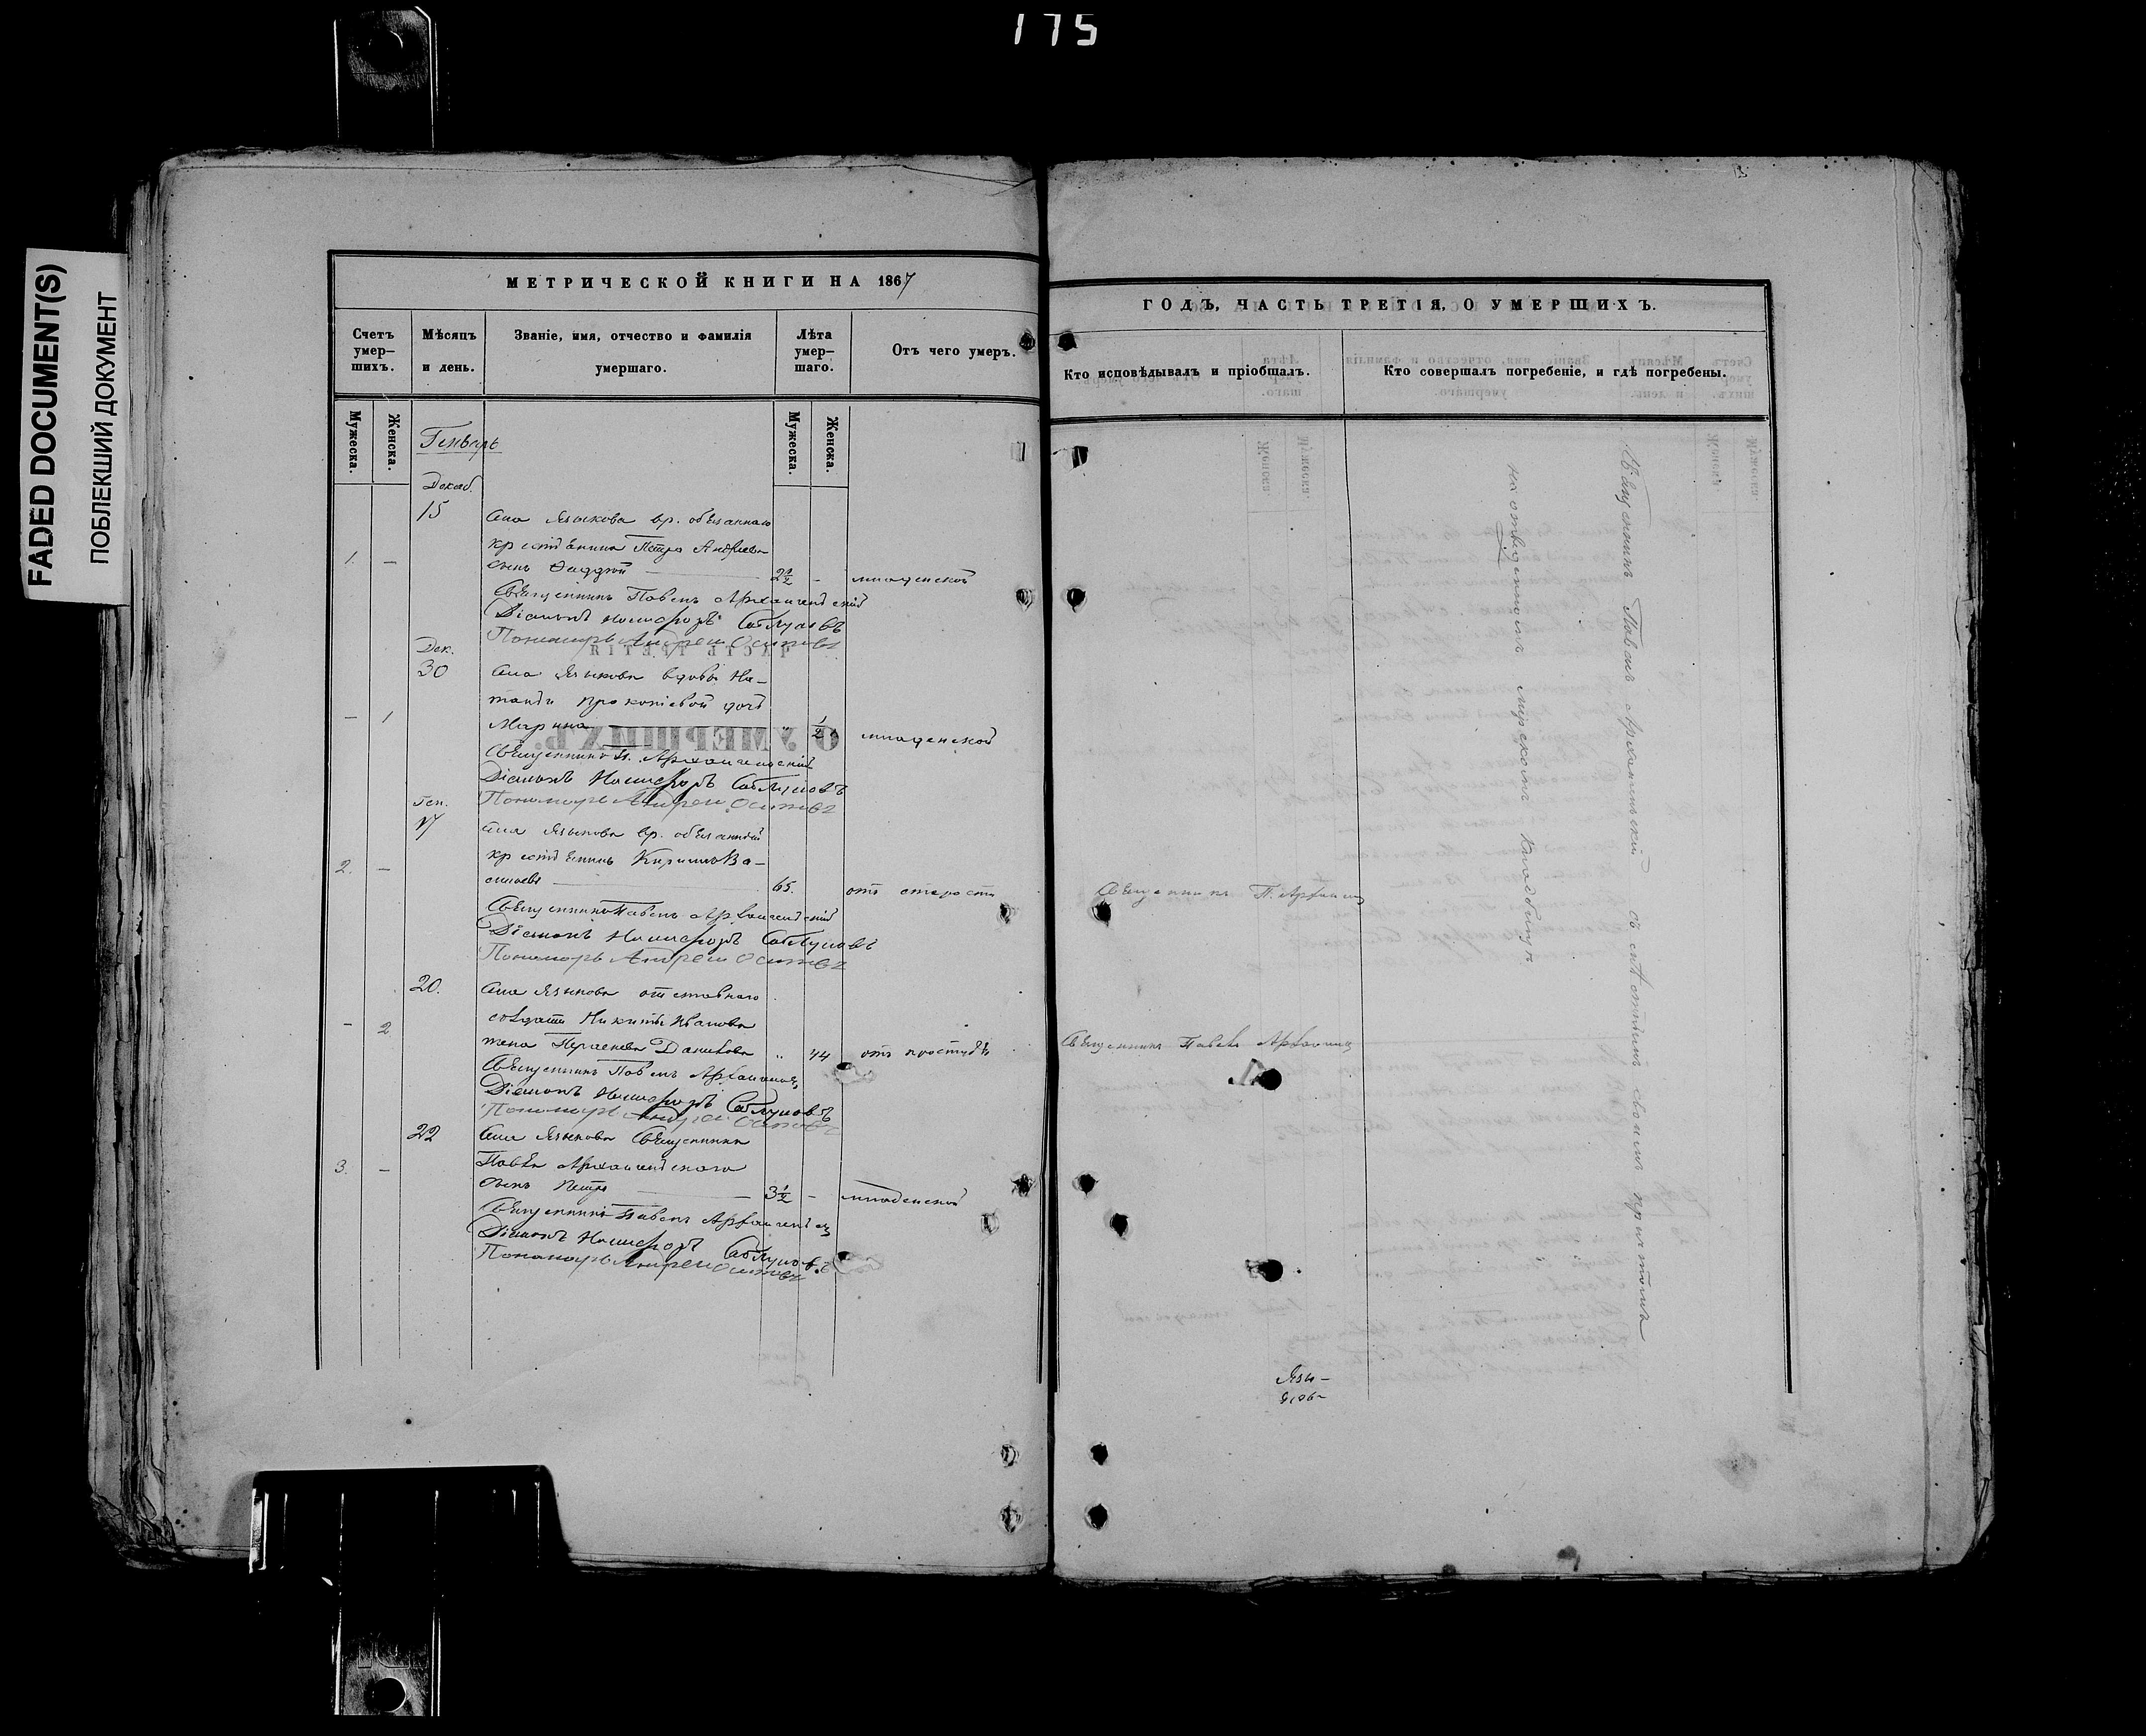 175
FADED DOCUMENT(S)
ПОБЛЕКШИЙ ДОКУМЕНТ
МЕТРИЧЕСКОЙ КНИГИ НА 1867
Счетъ умер-шихъ.
Мѣсяцъ и день.
Званіе, имя, отчество и фамилія умершаго.
Лѣта умер-шаго.
Отъ чего умеръ.
Мужеска.
Женска.
Мужеска.
Женска.
Генварь
Декаб.
15
Села Языкова вр. обязаннаго
1. –
крестьянина Петра Андреева
сынъ Фаддей 2½ – младенской
Священникъ Павелъ Архангельскій
Діаконъ Никифоръ Саблуковъ
Пономарь Андрей Осиповъ
Дек.
30
Села Языкова вдовы На-
тальи Прокопіевой дочь
– 1
Марина " ½ младенской
Священникъ П. Архангельскій
Діаконъ Никифоръ Саблуковъ
Пономарь Андрей Осиповъ
Ген.
17
Села Языкова вр. обязанный
2. –
крестьянинъ Кирилъ Ва-
сильевъ 65. отъ старости
Священникъ Павелъ Архангельскій
Діаконъ Никифоръ Саблуковъ
Пономарь Андрей Осиповъ
20.
Села Языкова отставнаго
– 2
солдата Никиты Иванова
жена Данилова " 44 отъ простуды
Священникъ Павелъ Архангел
Діаконъ Никифоръ Саблуковъ
Пономарь Андрей Осиповъ
22
Села Языкова Священника
3. –
Павла Архангельскаго
сынъ Петръ 3½ – младенской
Священникъ Павелъ Архангельск
Діаконъ Никифоръ Саблуковъ
Пономарь Андрей Осиповъ
ГОДЪ, ЧАСТЬ ТРЕТІЯ, О УМЕРШИХЪ.
Кто исповѣдывалъ и пріобщалъ.
Кто совершалъ погребеніе, и гдѣ погребены.
Священникъ П. Архангел
Священникъ Павелъ Архангел
Священникъ Павелъ Архангельскій съ симъ своимъ причтомъ
на отведенномъ мірскомъ кладбищѣ
Язы-